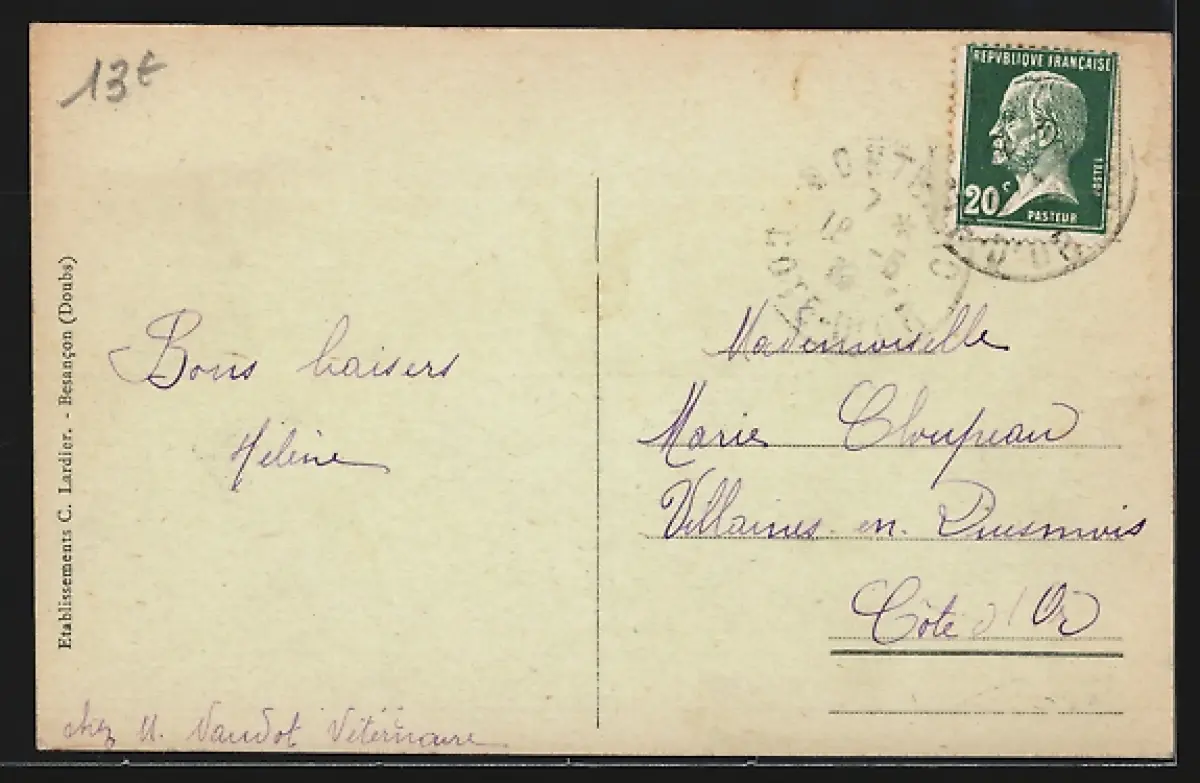 13€
REPVBLIQUE FRANÇAISE
20c
POSTES
PASTEUR
CÔTE-D'OR
Bons baisers
Hélène
Mademoiselle
Marie Cloupeau
Villaines-en-Duesmois
Côte d'Or
chez M. Vaudot Vétérinaire
Etablissements C. Lardier. - Besançon (Doubs)